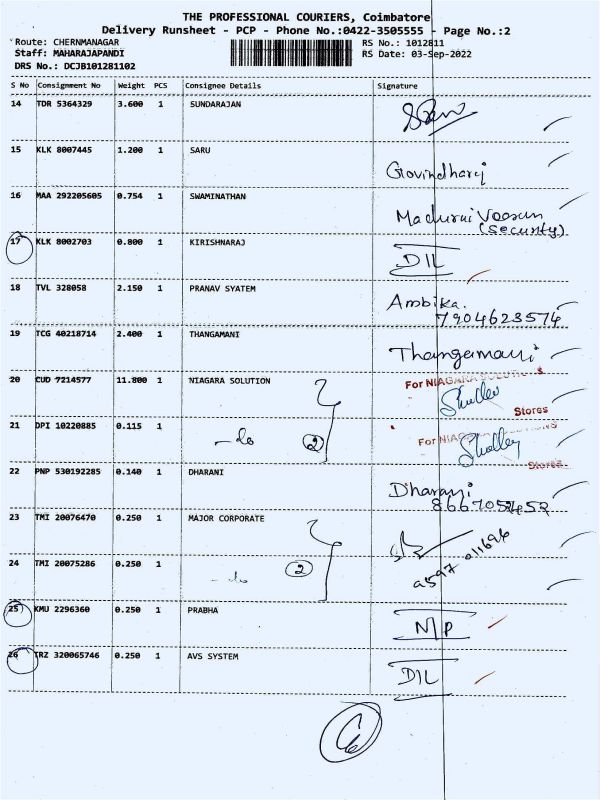 THE PROFESSIONAL COURIERS, Coimbatore
Delivery Runsheet - PCP - Phone No.:0422-3505555 - Page No.:2
Route: CHERNMANAGAR RS No.: 1012811
Staff: MAHARAJAPANDI RS Date: 03-Sep-2022
DRS No.: DCJB101281102
S No Consignment No Weight PCS Consignee Details Signature
14 TDR 5364329 3.600 1 SUNDARAJAN
15 KLK 8007445 1.200 1 SARU
Govindharaj
16 MAA 292205605 0.754 1 SWAMINATHAN
Madurai Veeran
(Security)
17 KLK 8002703 0.800 1 KIRISHNARAJ
DIL
18 TVL 328058 2.150 1 PRANAV SYATEM
Ambika.
7904623574
19 TCG 40218714 2.400 1 THANGAMANI
Thangamani
20 CUD 7214577 11.800 1 NIAGARA SOLUTION
For NIAGARA SOLUTIONS
Stores
21 DPI 10220885 0.115 1
- do 2
For NIAGARA SOLUTIONS
Stores
22 PNP 530192285 0.140 1 DHARANI
Dharani
23 TMI 20076470 0.250 1 MAJOR CORPORATE
24 TMI 20075286 0.250 1
- do 2
25 KMU 2296360 0.250 1 PRABHA
N/P
26 TRZ 320065746 0.250 1 AVS SYSTEM
DIL